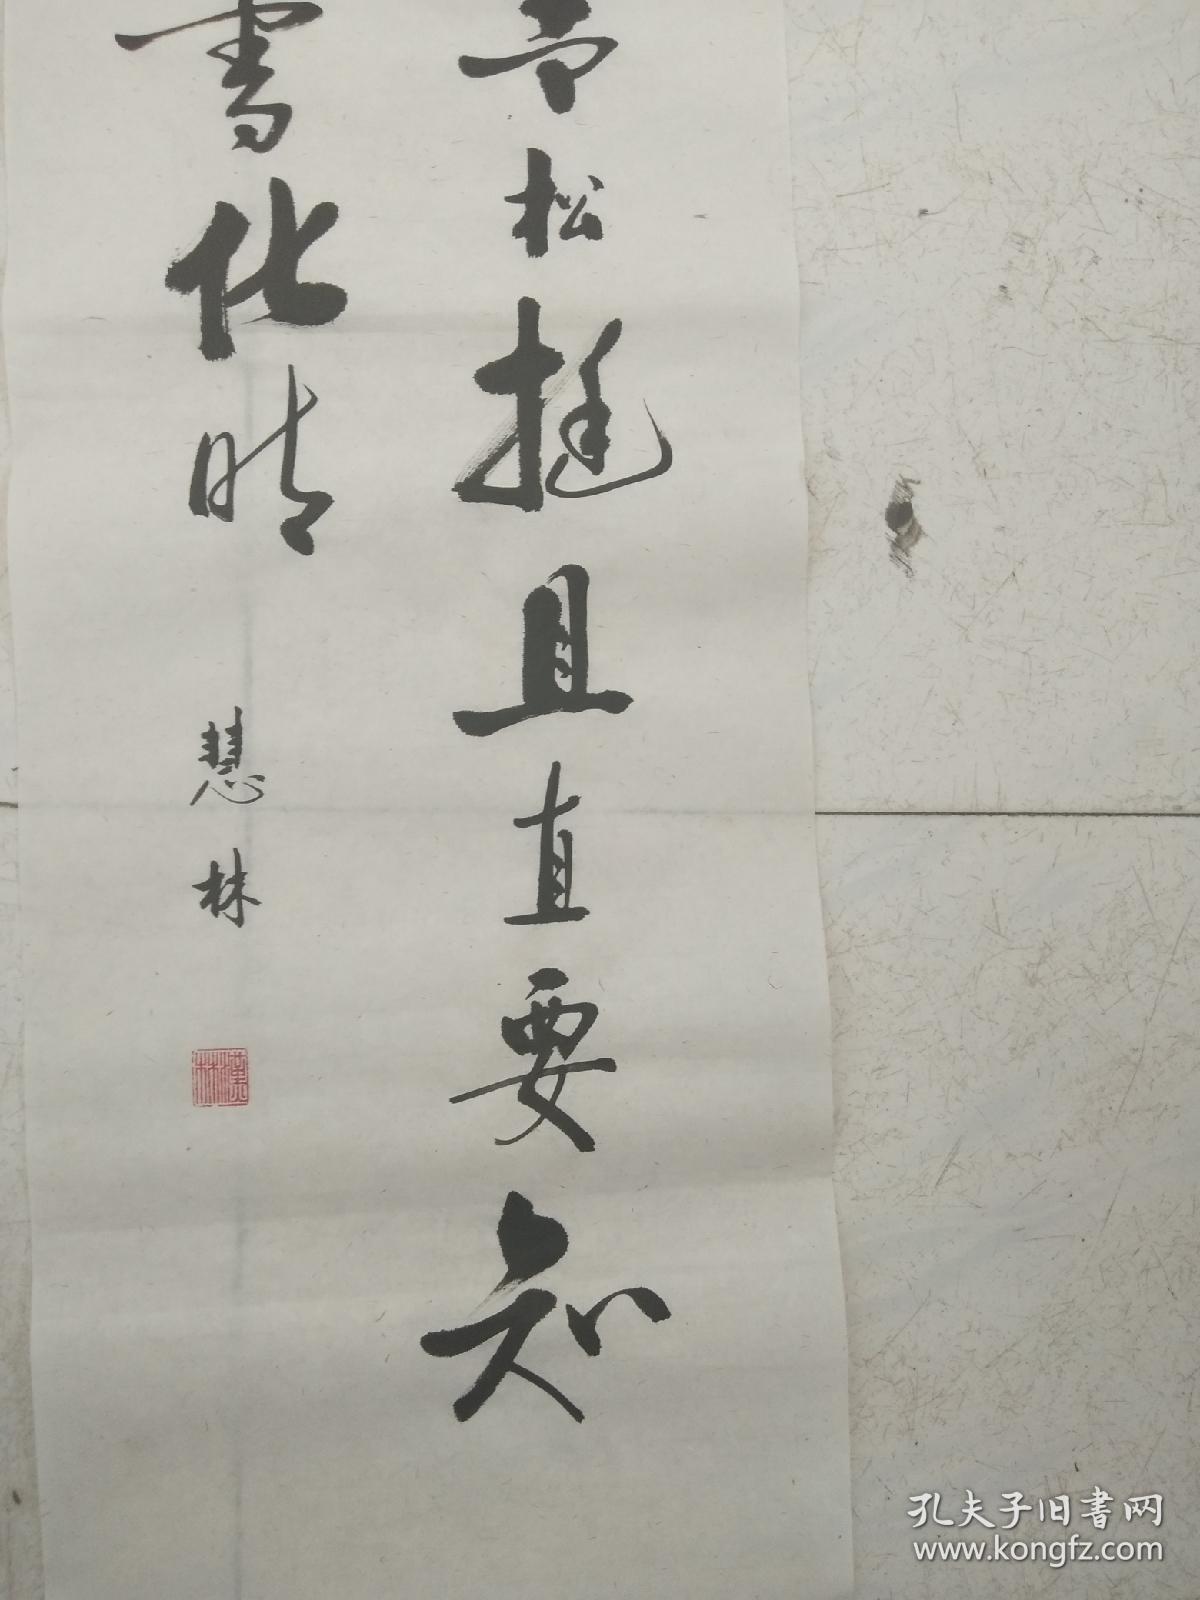 青松挺且直要知
雪化时
慧林
孔夫子旧书网
www.kongfz.com